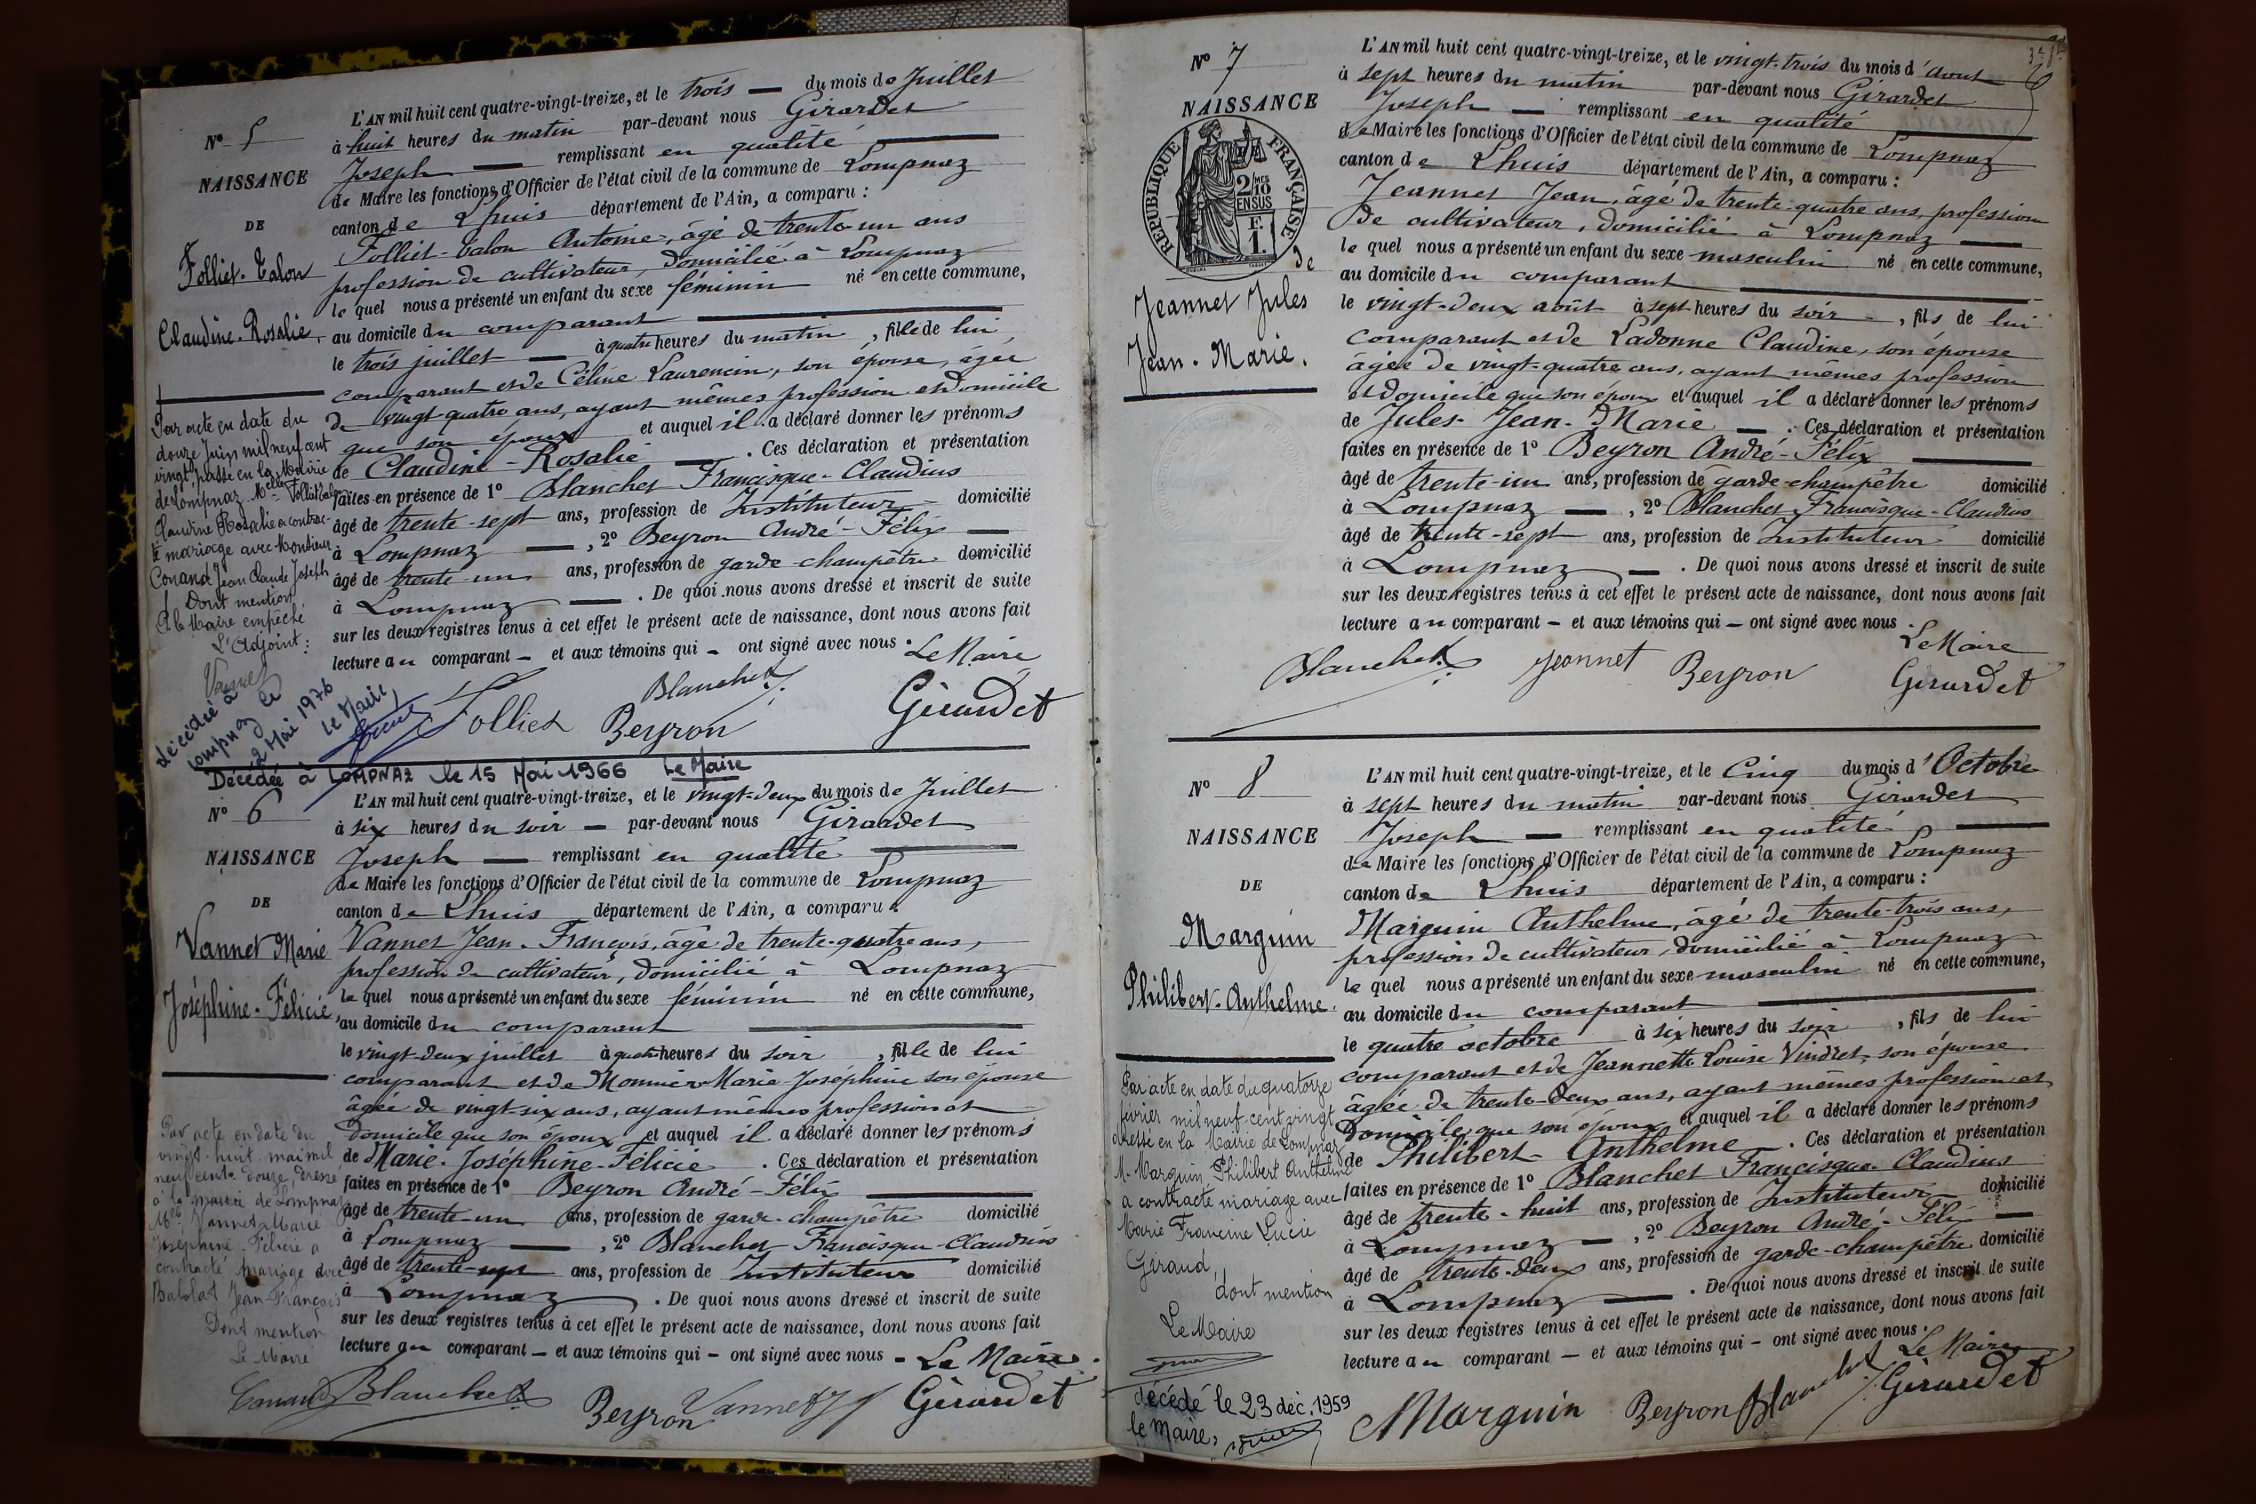 L'AN mil huit cent quatre-vingt-treize, et le trois — du mois de Juillet
N° 5
à huit heures du matin par-devant nous Girardet
NAISSANCE
Joseph — remplissant en qualité
de Maire les fonctions d'Officier de l'état civil de la commune de Lompnaz
DE
canton de Lhuis département de l'Ain, a comparu :
Folliet-Talon
Folliet-Talon Antoine, âgé de trente-un ans
profession de cultivateur, domicilié à Lompnaz
le quel nous a présenté un enfant du sexe féminin né en cette commune,
Claudine-Rosalie,
au domicile du comparant
le trois juillet — à quatre heures du matin, fille de lui
comparant et de Céline Laurencin, son épouse, âgée
de vingt-quatre ans, ayant mêmes profession et domicile
que son époux et auquel il a déclaré donner les prénoms
de Claudine-Rosalie — . Ces déclaration et présentation
faites en présence de 1° Blanchet Francisque-Claudius
âgé de trente-sept ans, profession de Instituteur domicilié
à Lompnaz — , 2° Beyron André-Félix
âgé de trente-un ans, profession de garde-champêtre domicilié
à Lompnaz — . De quoi nous avons dressé et inscrit de suite
sur les deux registres tenus à cet effet le présent acte de naissance, dont nous avons fait
lecture au comparant — et aux témoins qui — ont signé avec nous.
Le Maire
Folliet Blanchet Beyron Girardet
Par acte en date du
douze Juin mil neuf cent
vingt, passé en la Mairie
de Lompnaz Melle Folliet Talon
Claudine Rosalie a contrac-
té mariage avec Monsieur
Conand Jean Claude Joseph
Dont mention
P. le Maire empêché
L'Adjoint :
Vannet
décédée à
Lompnaz le
2 Mai 1976
Le Maire,
Décédée à LOMPNAZ le 15 Mai 1966 Le Maire
N° 6
L'AN mil huit cent quatre-vingt-treize, et le vingt-deux du mois de Juillet
à six heures du soir — par-devant nous Girardet
NAISSANCE
Joseph — remplissant en qualité
de Maire les fonctions d'Officier de l'état civil de la commune de Lompnaz
DE
canton de Lhuis département de l'Ain, a comparu :
Vannet Marie
Vannet Jean-François, âgé de trente-quatre ans,
profession de cultivateur, domicilié à Lompnaz
Joséphine-Félicie,
le quel nous a présenté un enfant du sexe féminin né en cette commune,
au domicile du comparant
le vingt-deux juillet à quatre heures du soir, fille de lui
comparant et de Monnier Marie-Joséphine son épouse
âgée de vingt-six ans, ayant mêmes profession et
domicile que son époux et auquel il a déclaré donner les prénoms
de Marie-Joséphine-Félicie . Ces déclaration et présentation
faites en présence de 1° Beyron André-Félix
âgé de trente-un ans, profession de garde-champêtre domicilié
à Lompnaz — , 2° Blanchet Francisque-Claudius
âgé de trente-sept ans, profession de Instituteur domicilié
à Lompnaz . De quoi nous avons dressé et inscrit de suite
sur les deux registres tenus à cet effet le présent acte de naissance, dont nous avons fait
lecture au comparant — et aux témoins qui — ont signé avec nous. Le Maire.
Blanchet Beyron Vannet Girardet
Par acte en date du
vingt-huit mai mil
neuf cent douze, dressé
à la mairie de Lompnaz
Melle Vannet Marie
Joséphine-Félicie a
contracté mariage avec
Babolat Jean-François
Dont mention
Le Maire
Conand
N° 7
L'AN mil huit cent quatre-vingt-treize, et le vingt-trois du mois d'aout
à sept heures du matin par-devant nous Girardet
NAISSANCE
Joseph — remplissant en qualité
de Maire les fonctions d'Officier de l'état civil de la commune de Lompnaz
canton de Lhuis département de l'Ain, a comparu :
REPUBLIQUE FRANÇAISE
2 10MES EN SUS
1 F.
de
Jeannet Jules
Jean-Marie.
Jeannet Jean, âgé de trente-quatre ans, profession
de cultivateur, domicilié à Lompnaz —
le quel nous a présenté un enfant du sexe masculin né en cette commune,
au domicile du comparant
le vingt-deux août à sept heures du soir —, fils de lui
comparant et de Ladonne Claudine, son épouse
âgée de vingt-quatre ans, ayant mêmes profession
et domicile que son époux et auquel il a déclaré donner les prénoms
de Jules-Jean-Marie — . Ces déclaration et présentation
faites en présence de 1° Beyron André-Félix
âgé de trente-un ans, profession de garde-champêtre domicilié
à Lompnaz — , 2° Blanchet Francisque-Claudius
âgé de trente-sept ans, profession de Instituteur domicilié
à Lompnaz — . De quoi nous avons dressé et inscrit de suite
sur les deux registres tenus à cet effet le présent acte de naissance, dont nous avons fait
lecture au comparant — et aux témoins qui — ont signé avec nous.
Le Maire
Blanchet Jeannet Beyron Girardet
N° 8
L'AN mil huit cent quatre-vingt-treize, et le Cinq du mois d'Octobre
à sept heures du matin par-devant nous Girardet
NAISSANCE
Joseph — remplissant en qualité
de Maire les fonctions d'Officier de l'état civil de la commune de Lompnaz
DE
canton de Lhuis département de l'Ain, a comparu :
Marguin
Marguin Anthelme, âgé de trente-trois ans,
profession de cultivateur, domicilié à Lompnaz
Philibert-Anthelme.
le quel nous a présenté un enfant du sexe masculin né en cette commune,
au domicile du comparant
le quatre octobre à six heures du soir, fils de lui
comparant et de Jeannette Louise Vindret, son épouse
âgée de trente-deux ans, ayant mêmes profession et
domicile que son époux et auquel il a déclaré donner les prénoms
de Philibert-Anthelme — . Ces déclaration et présentation
faites en présence de 1° Blanchet Francisque-Claudius
âgé de trente-huit ans, profession de Instituteur domicilié
à Lompnaz — , 2° Beyron André-Félix —
âgé de trente-deux ans, profession de garde-champêtre domicilié
à Lompnaz — . De quoi nous avons dressé et inscrit de suite
sur les deux registres tenus à cet effet le présent acte de naissance, dont nous avons fait
lecture au comparant — et aux témoins qui — ont signé avec nous.
Le Maire
Marguin Beyron Blanchet Girardet
Par acte en date du quatorze
février mil neuf-cent vingt
dressé en la Mairie de Lompnaz
M. Marguin Philibert Anthelme
a contracté mariage avec
Marie Francine Lucie
Giraud,
dont mention
Le Maire
décédé le 23 déc. 1959
le Maire,